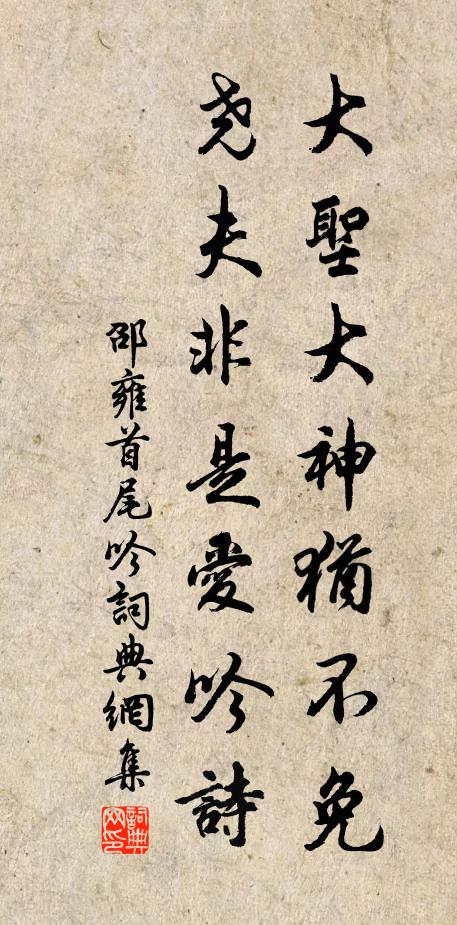 大聖大神猶不免
堯夫非是愛吟詩
邵雍首尾吟詞典網集
詞典網印